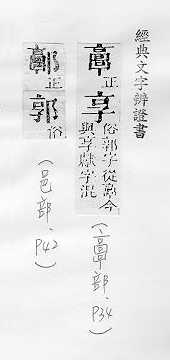 經典文字辨證書
𩫏正
享俗郭字從𩫏今
與享獻字混
(𩫏部、P34)
正
郭俗
(邑部、P42)